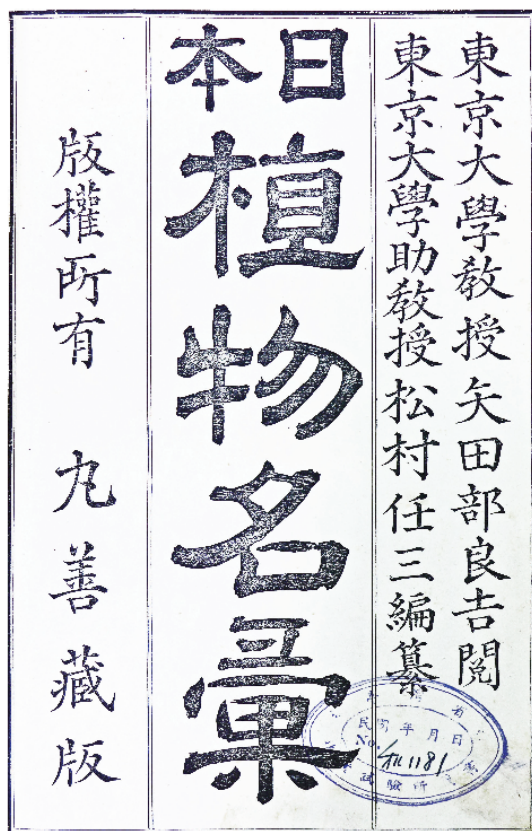 東京大學教授矢田部良吉閲
東京大學助教授松村任三編纂
日本
植物名彙
版權所有 丸善藏版
省
民國 年 月 日
No. 和1181
試驗所